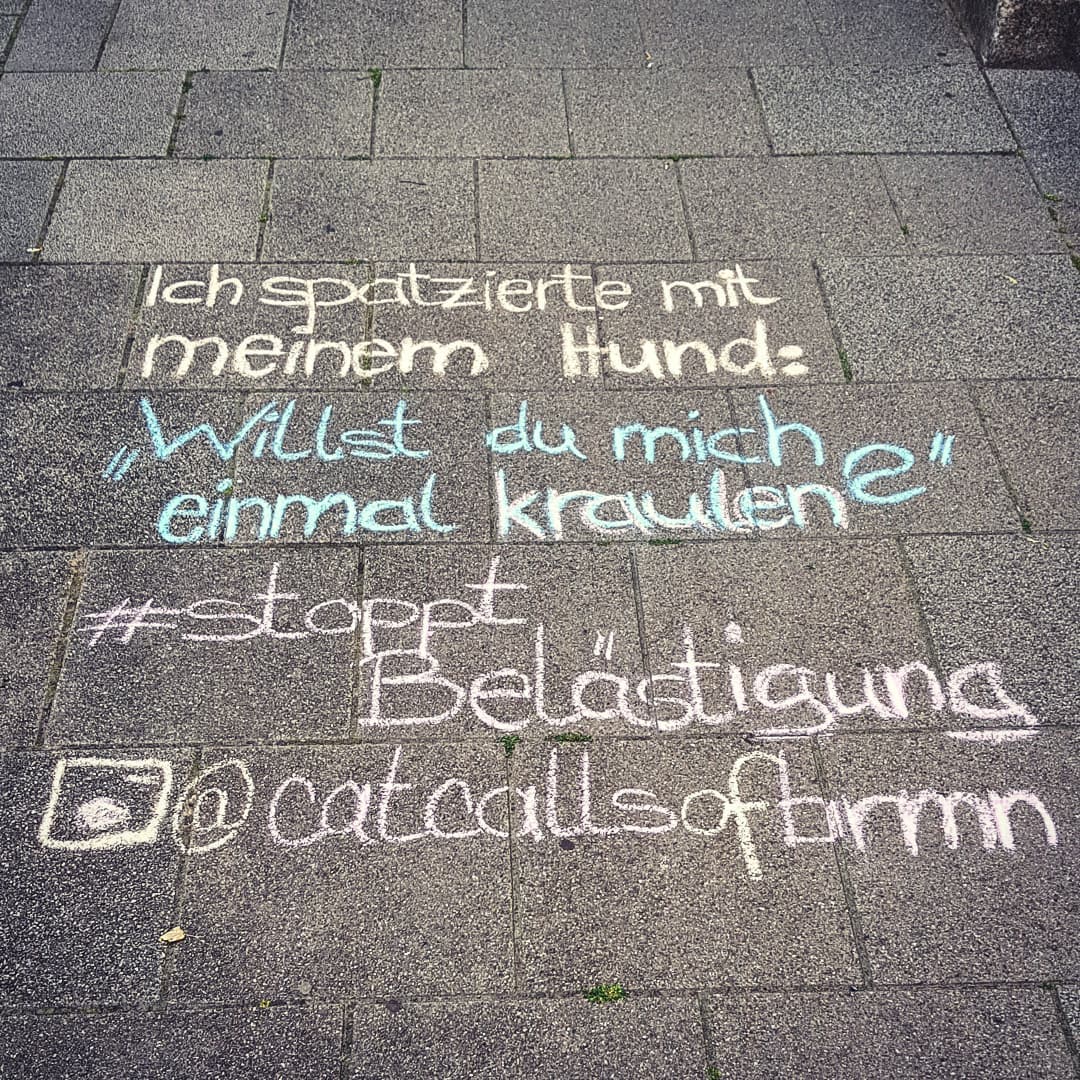 Ich spatzierte mit
meinem Hund:
„Willst du mich
einmal kraulen?"
#stoppt
Belästigung
@catcallsofbirmn